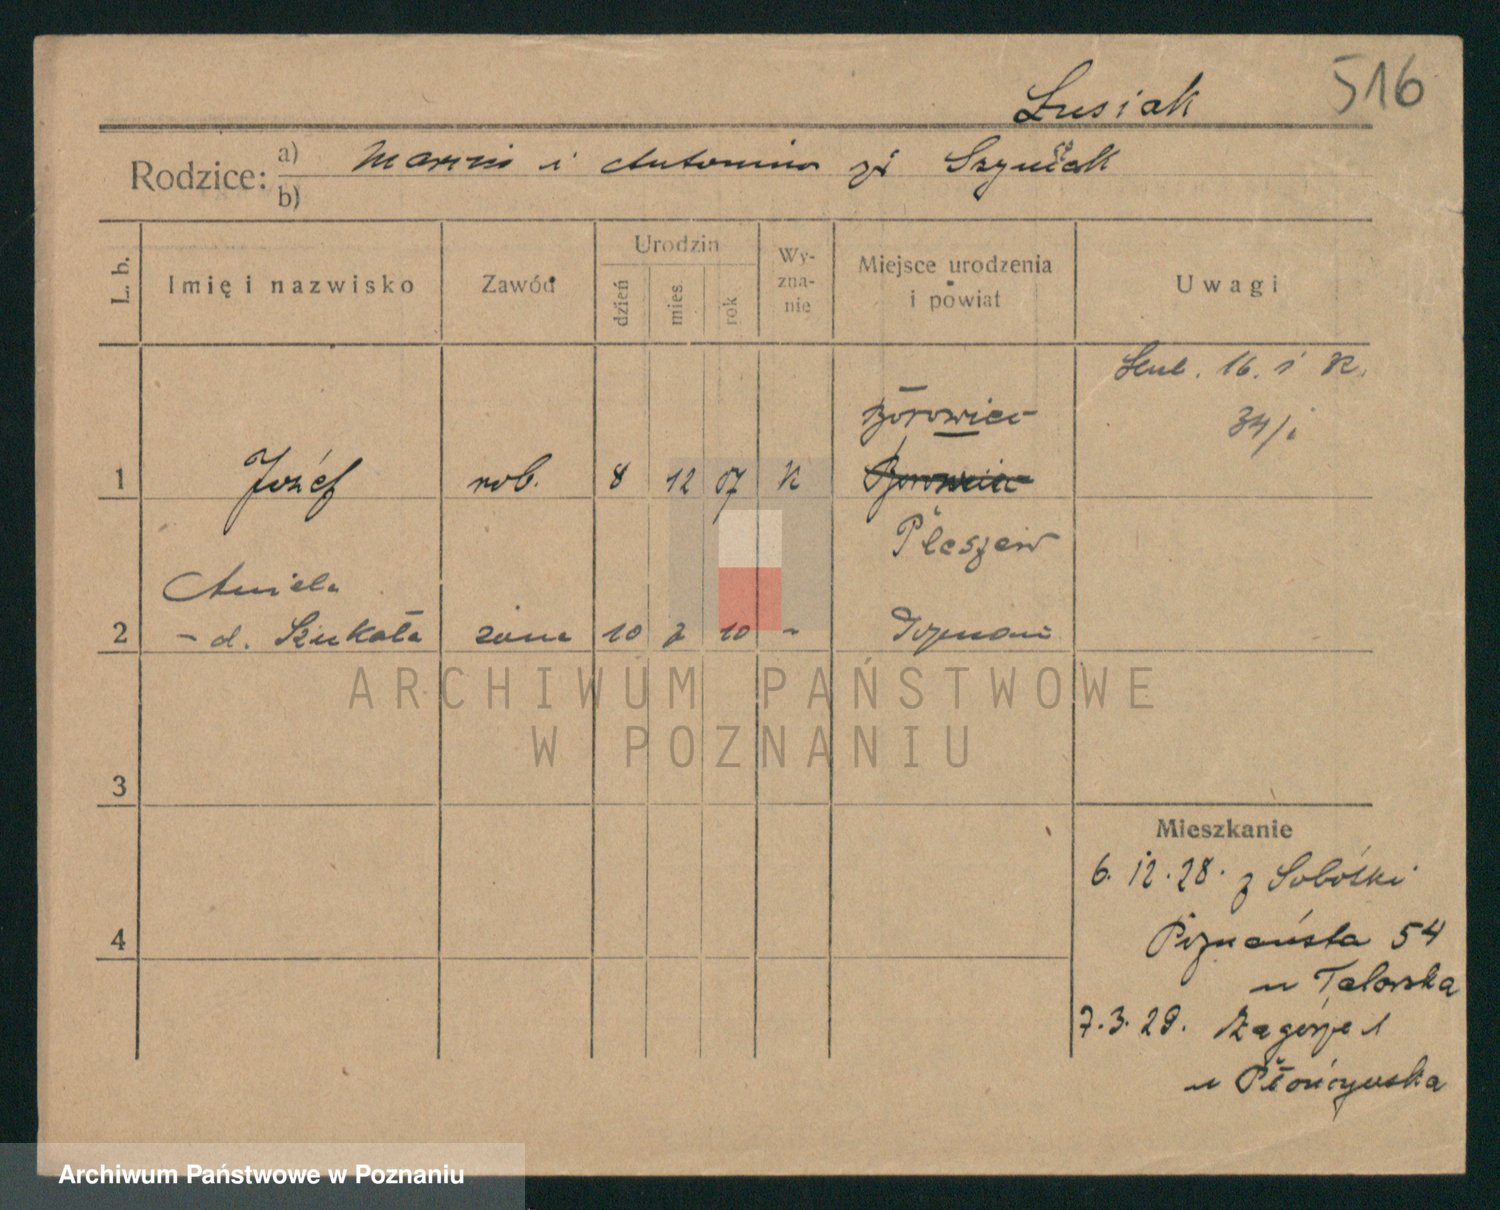 516
Łusiak
Rodzice: a) Marcin i Antonina zd Szymczak
b)
L. b.
Imię i nazwisko
Zawód
Urodzin
dzień
mies.
rok
Wy-
zna-
nie
Miejsce urodzenia
i powiat
Uwagi
16. i K.
34/i
Borowiec
1 Józef rob. 8 12 07 K
Pleszew
Aniela
2 - d. Szukała żona 10 2 10 - Poznań
3
4
Mieszkanie
6. 12. 28. z Sobótki
Poznańska 54
u Talarska
7. 3. 29. Zagórze 1
u Płończyńska
ARCHIWUM PAŃSTWOWE
W POZNANIU
Archiwum Państwowe w Poznaniu